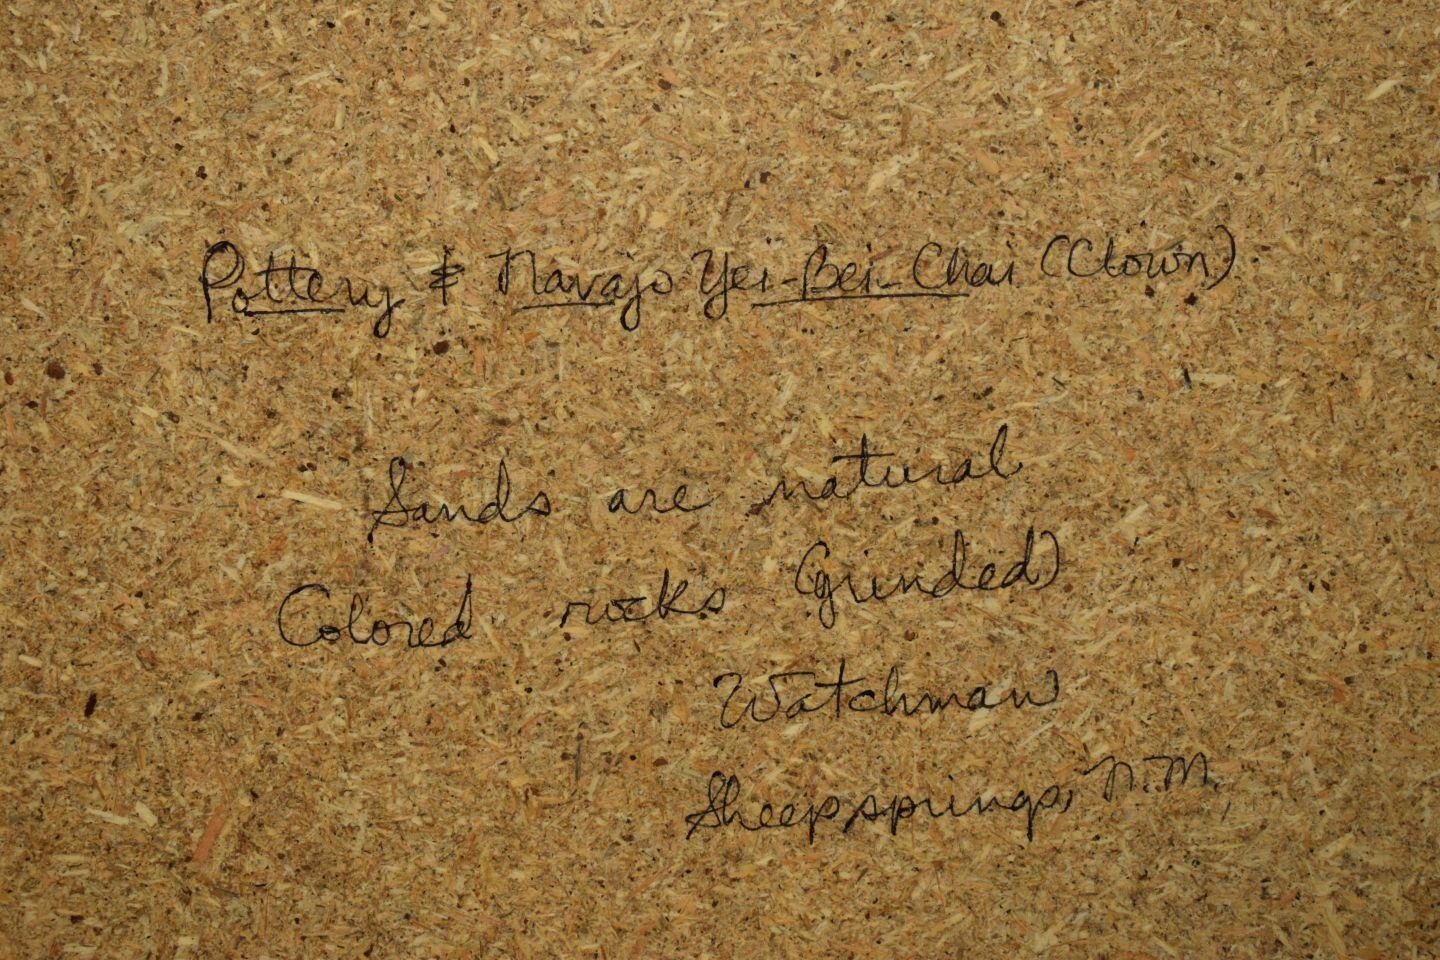 Pottery & Navajo Yei-Bei-Chai (Clown)
Sands are natural
Colored rocks (grinded)
Watchman
Sheepsprings, N.M.